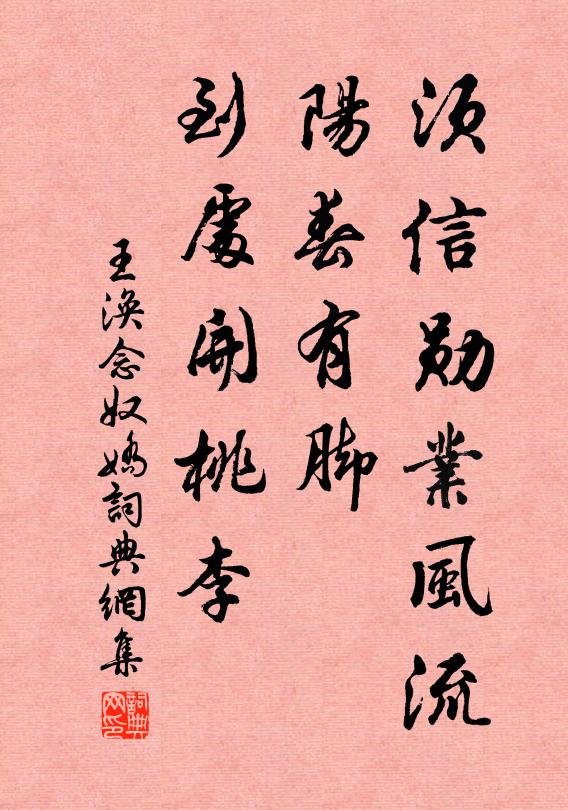 須信勛業風流
陽春有脚
到處開桃李
王渙念奴嬌詞典網集
詞典网印